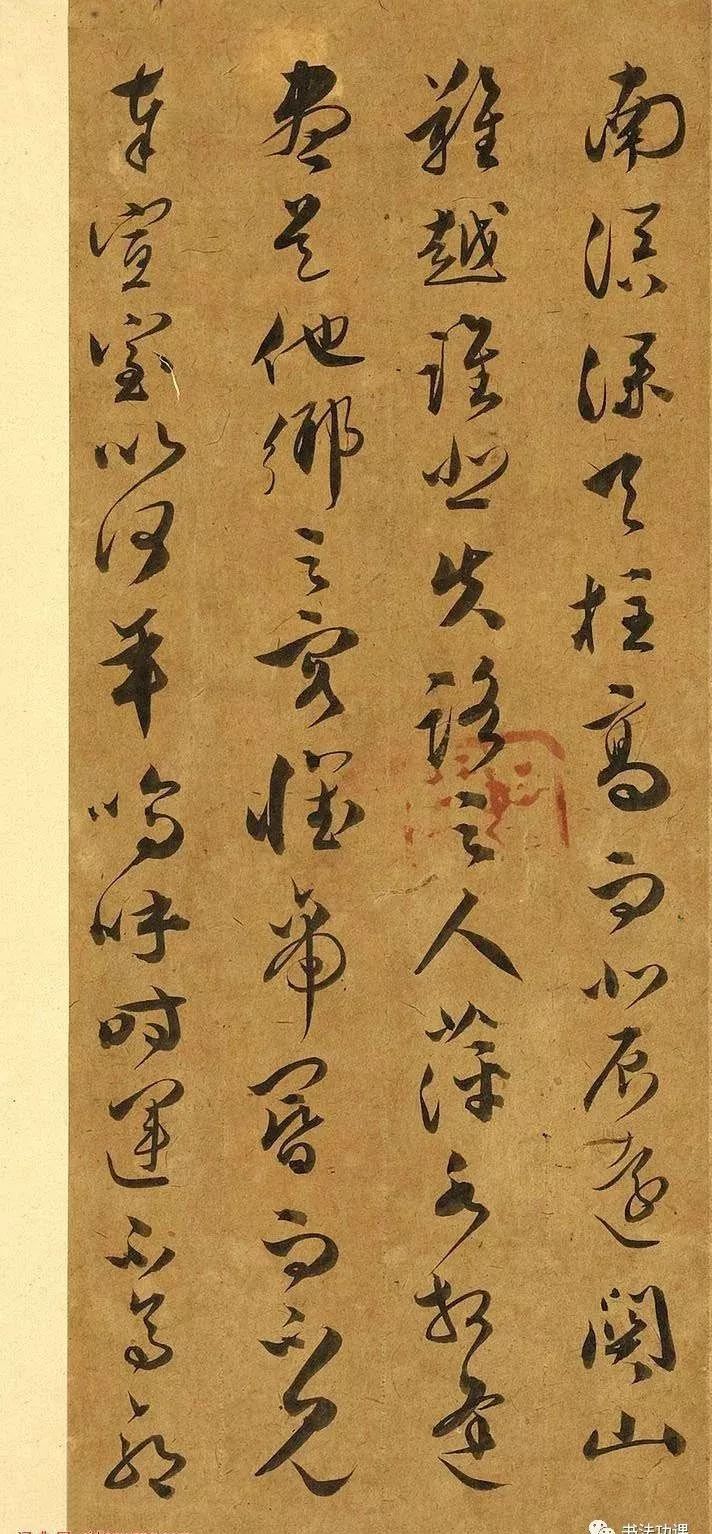 南溟深天柱高而北辰遠關山
難越誰悲失路之人萍水相逢
盡是他鄉之客懷帝閽而不見
奉宣室以何年嗚呼時運不齊命
書法功課